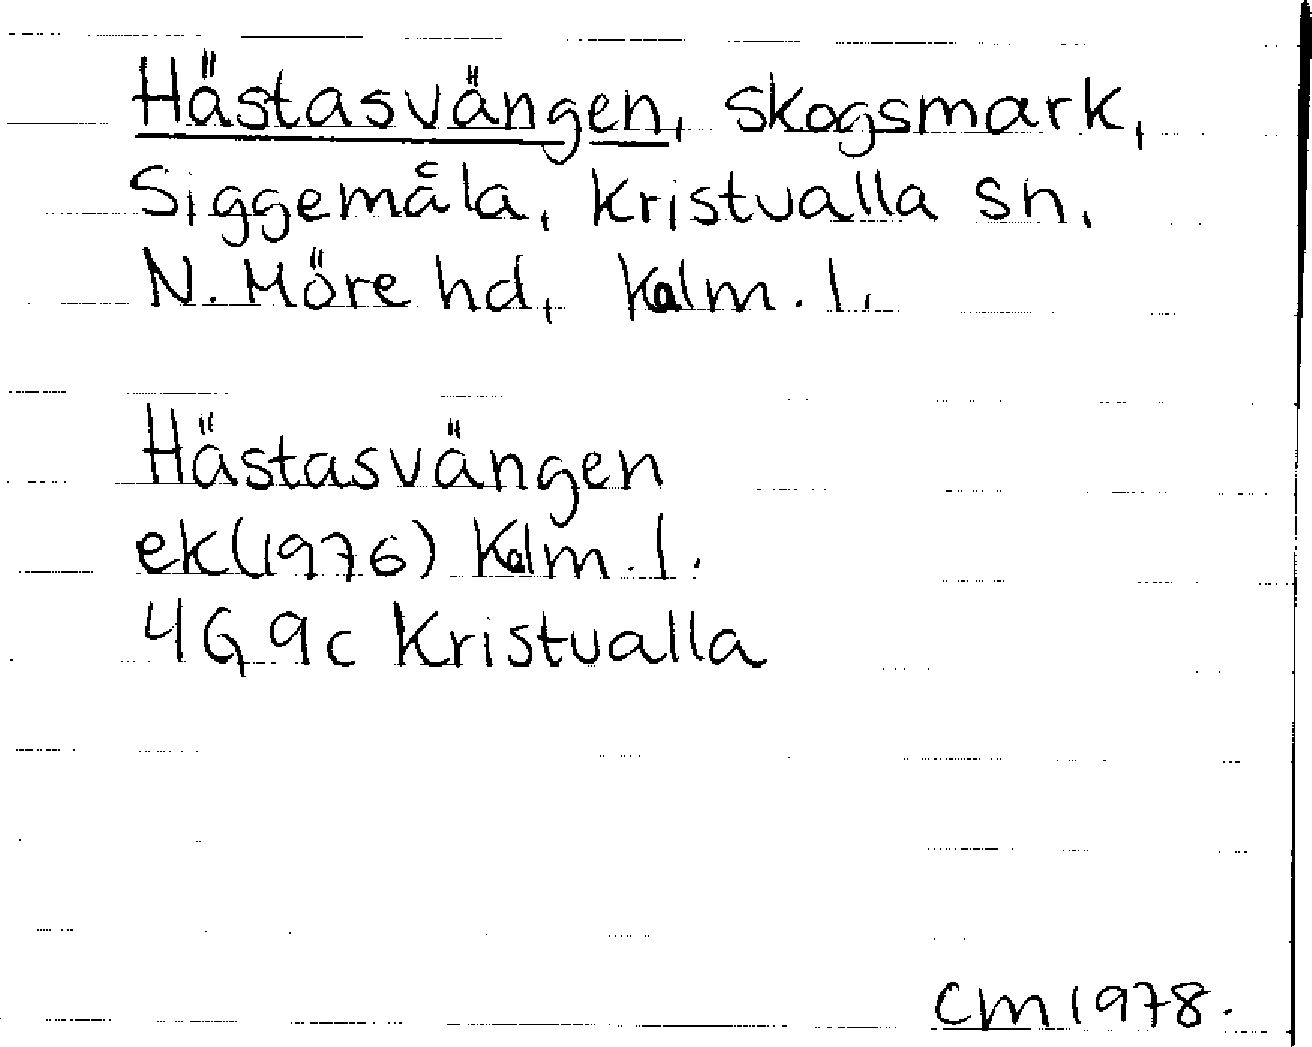 Hästasvängen, skogsmark,
Siggemåla, Kristvalla sn,
N. Möre hd, Kalm. l.
Hästasvängen
ek (1976) Kalm. l.
4G 9c Kristvalla
CM 1978.